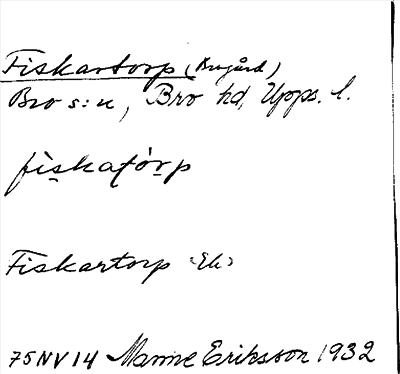 Fiskartorp (Krogård)
Bro s:n, Bro hd, Upps. l.
fìskat́órp
Fiskartorp Ek
75NV14 Manne Eriksson 1932